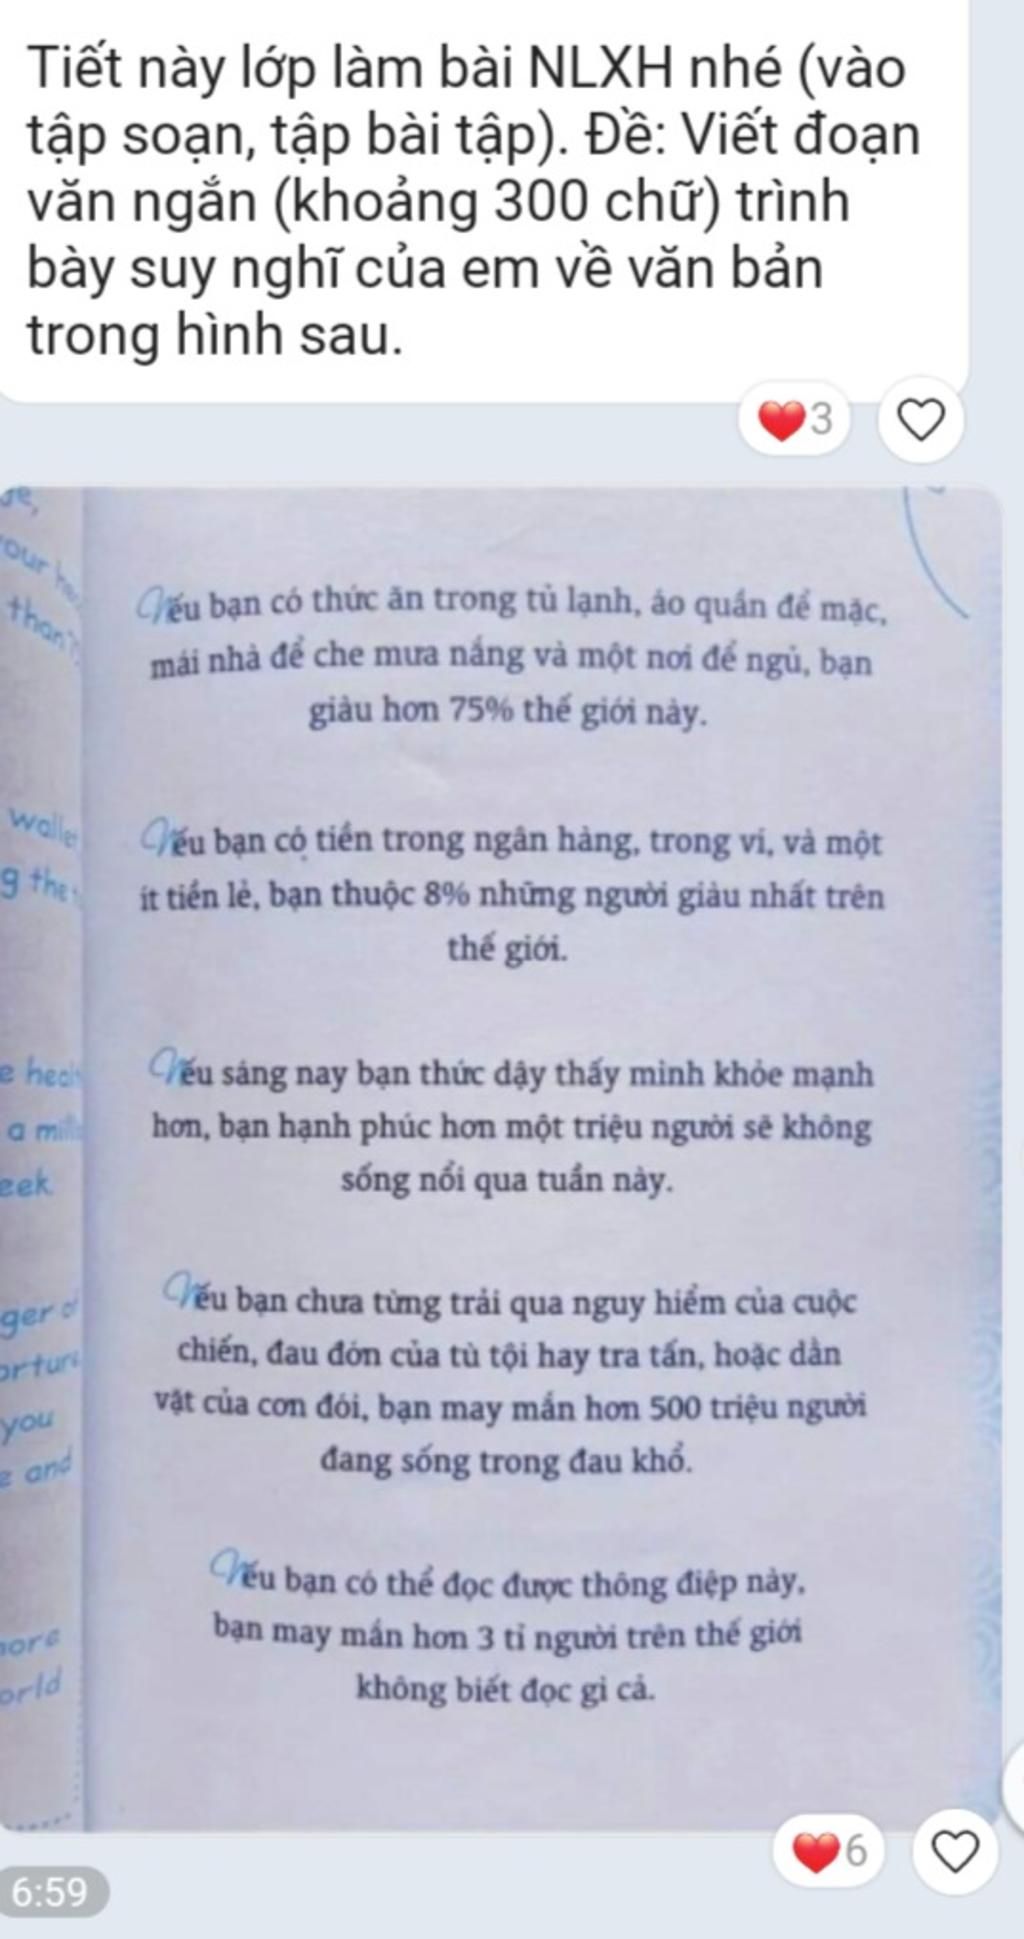 Tiết này lớp làm bài NLXH nhé (vào
tập soạn, tập bài tập). Đề: Viết đoạn
văn ngắn (khoảng 300 chữ) trình
bày suy nghĩ của em về văn bản
trong hình sau.
3
your
than
Nếu bạn có thức ăn trong tủ lạnh, áo quần để mặc,
mái nhà để che mưa nắng và một nơi để ngủ, bạn
giàu hơn 75% thế giới này.
g the
Nếu bạn có tiền trong ngân hàng, trong ví, và một
ít tiền lẻ, bạn thuộc 8% những người giàu nhất trên
thế giới.
a
eek
Nếu sáng nay bạn thức dậy thấy mình khỏe mạnh
hơn, bạn hạnh phúc hơn một triệu người sẽ không
sống nổi qua tuần này.
ger
you
and
Nếu bạn chưa từng trải qua nguy hiểm của cuộc
chiến, đau đớn của tù tội hay tra tấn, hoặc dằn
vặt của cơn đói, bạn may mắn hơn 500 triệu người
đang sống trong đau khổ.
ore
orld
Nếu bạn có thể đọc được thông điệp này,
bạn may mắn hơn 3 tỉ người trên thế giới
không biết đọc gì cả.
6
6:59